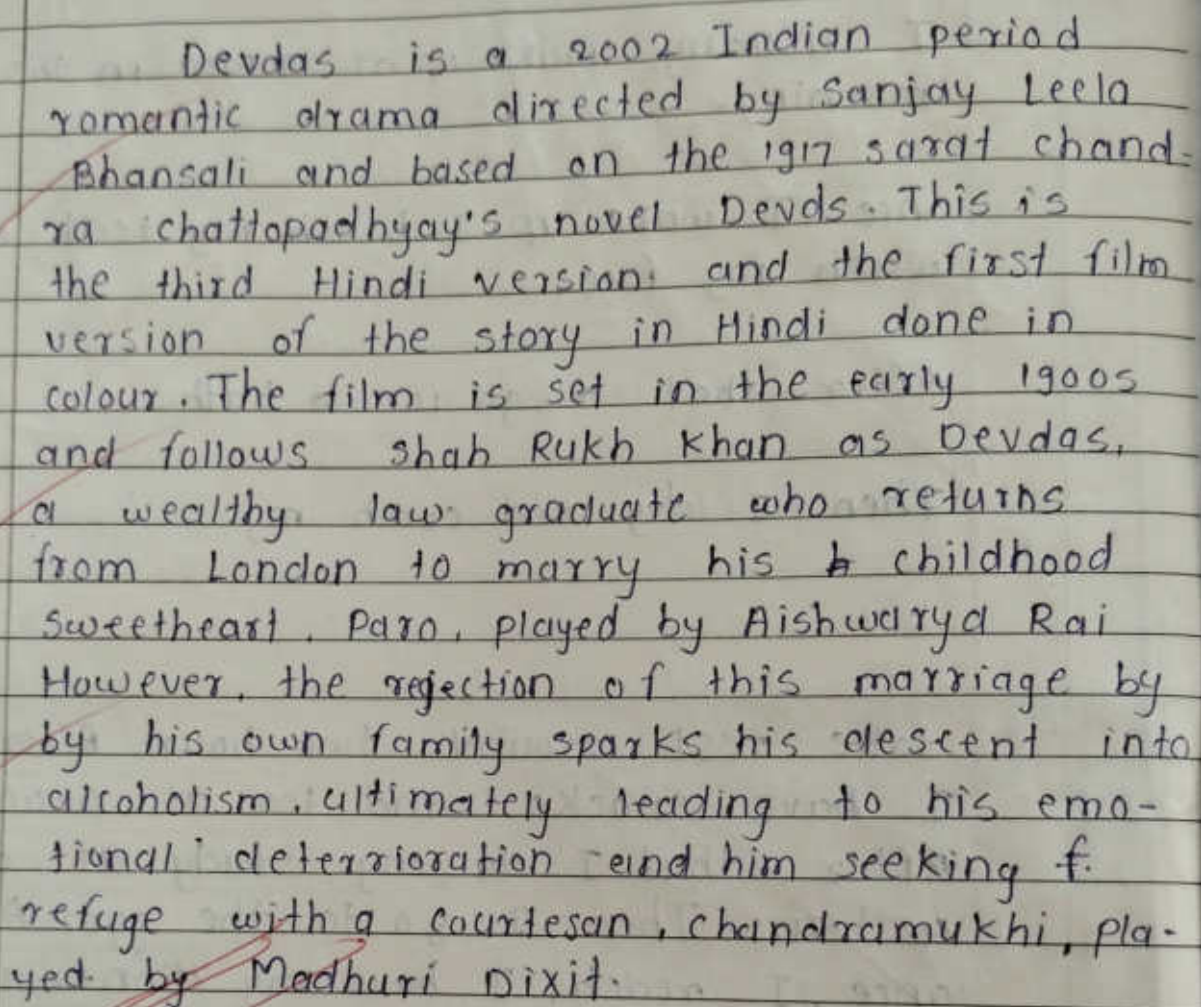 Devdas is a 2002 Indian period
romantic drama directed by Sanjay Leela
Bhansali and based on the 1917 sarat chand-
ra chattopadhyay's novel Devds. This is
the third Hindi version and the first film
version of the story in Hindi done in
colour. The film is set in the early 1900s
and follows Shah Rukh Khan as Devdas,
a wealthy law graduate who returns
from London to marry his childhood
sweetheart, Paro, played by Aishwarya Rai
However, the rejection of this marriage by
by his own family sparks his descent into
alcoholism, ultimately leading to his emo-
tional deterrioration and him seeking f.
refuge with a courtesan, chandramukhi, pla-
yed by Madhuri Dixit.